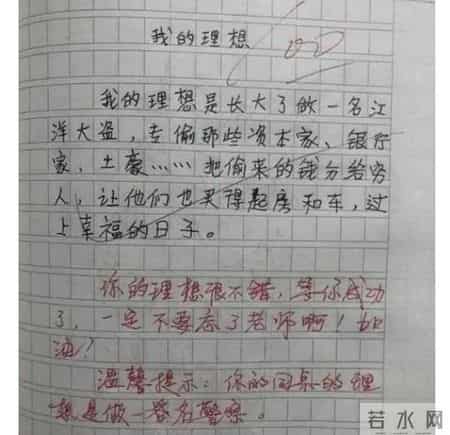 我的理想
我的理想是长大了做一名江
洋大盗，专偷那些资本家、银行
家、土豪……把偷来的钱分给穷
人，让他们也买得起房和车，过
上幸福的日子。
你的理想很不错，等你成功
了，一定不要忘了老师啊！加
油！
温馨提示：你的同桌的理
想是做一名警察。
若水网
java-er.com